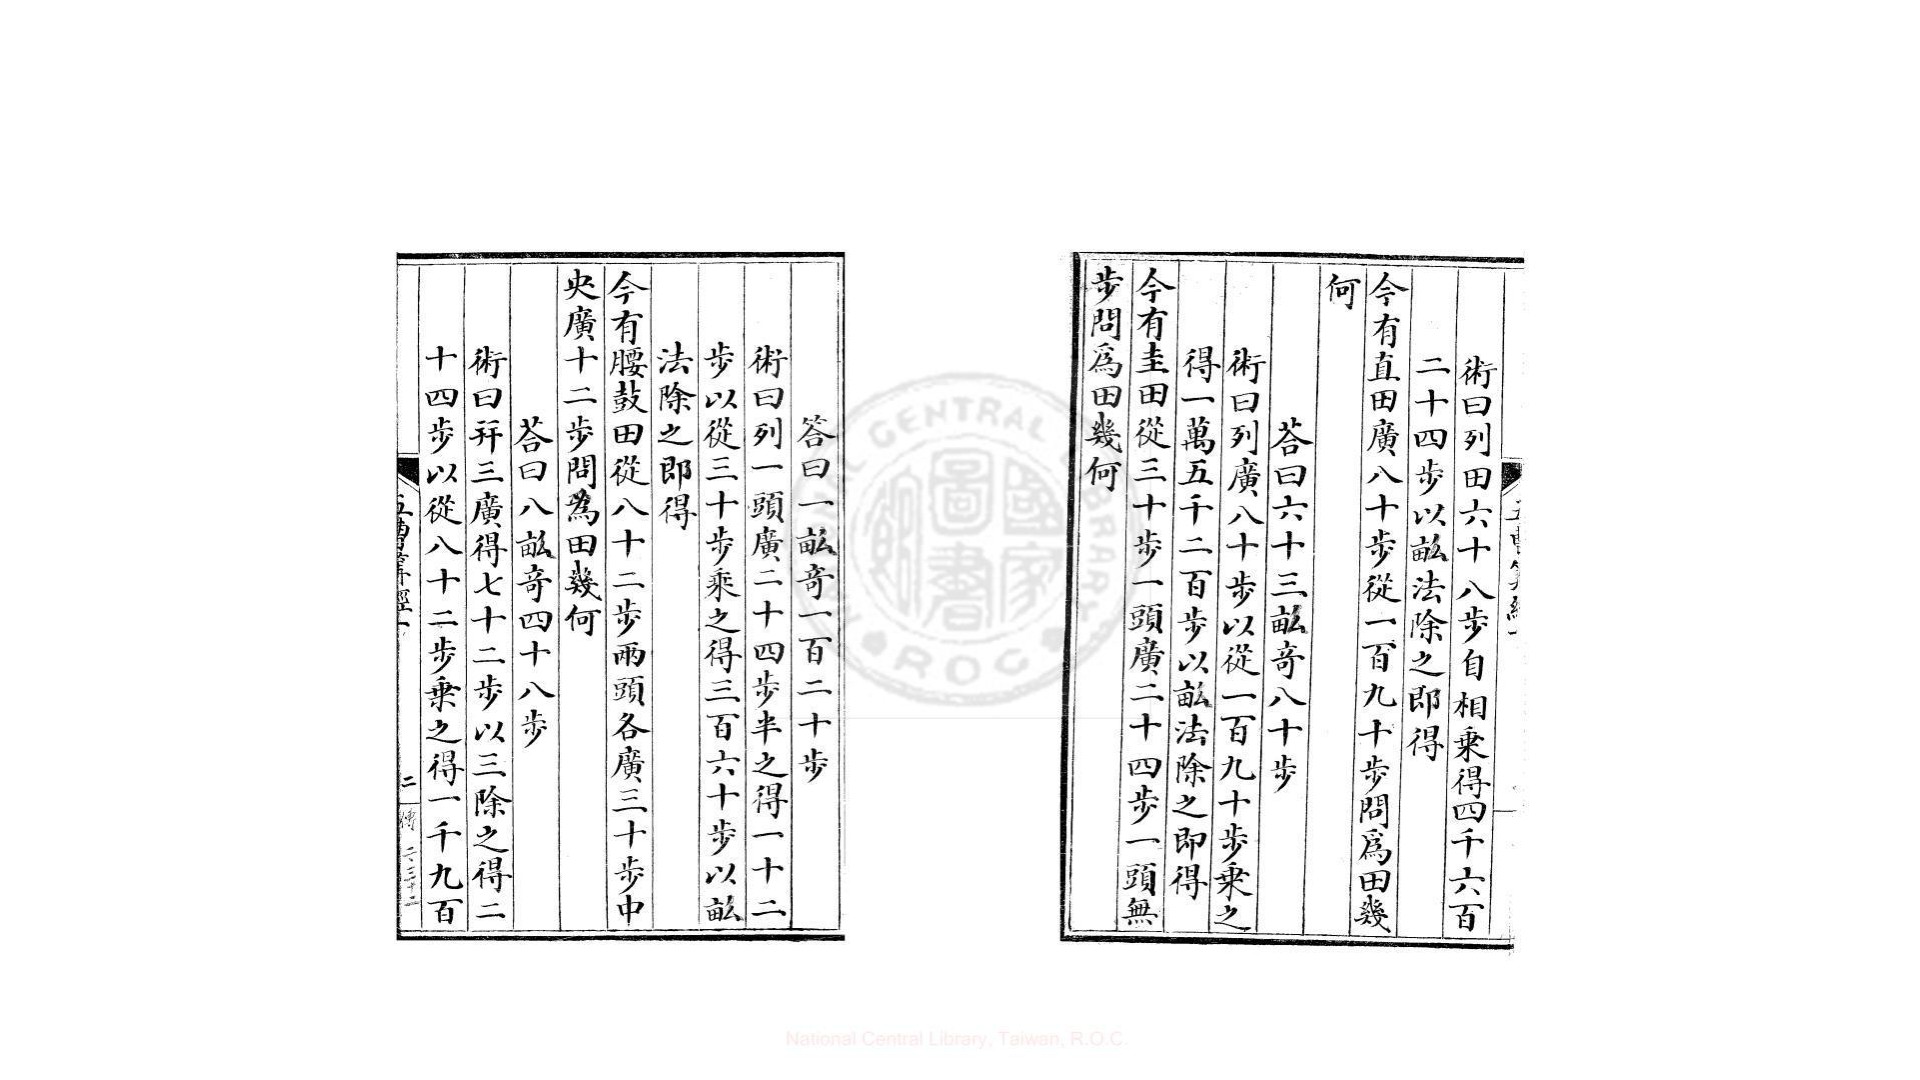 術曰列田六十八步自相乗得四千六百
二十四步以畝法除之即得
今有直田廣八十步從一百九十步問爲田幾
何
荅曰六十三畝竒八十步
術曰列廣八十步以從一百九十步乗之
得一萬五千二百步以畝法除之即得
今有圭田從三十步一頭廣二十四步一頭無
步問爲田幾何
答曰一畝竒一百二十步
術曰列一頭廣二十四步半之得一十二
步以從三十步乗之得三百六十步以畝
法除之即得
今有腰鼓田從八十二步兩頭各廣三十步中
央廣十二步問為田幾何
荅曰八畝竒四十八步
術曰并三廣得七十二步以三除之得二
十四步以從八十二步乗之得一千九百
二
National Central Library, Taiwan, R.O.C.
NATIONAL CENTRAL LIBRARY
ROC
國家圖書館